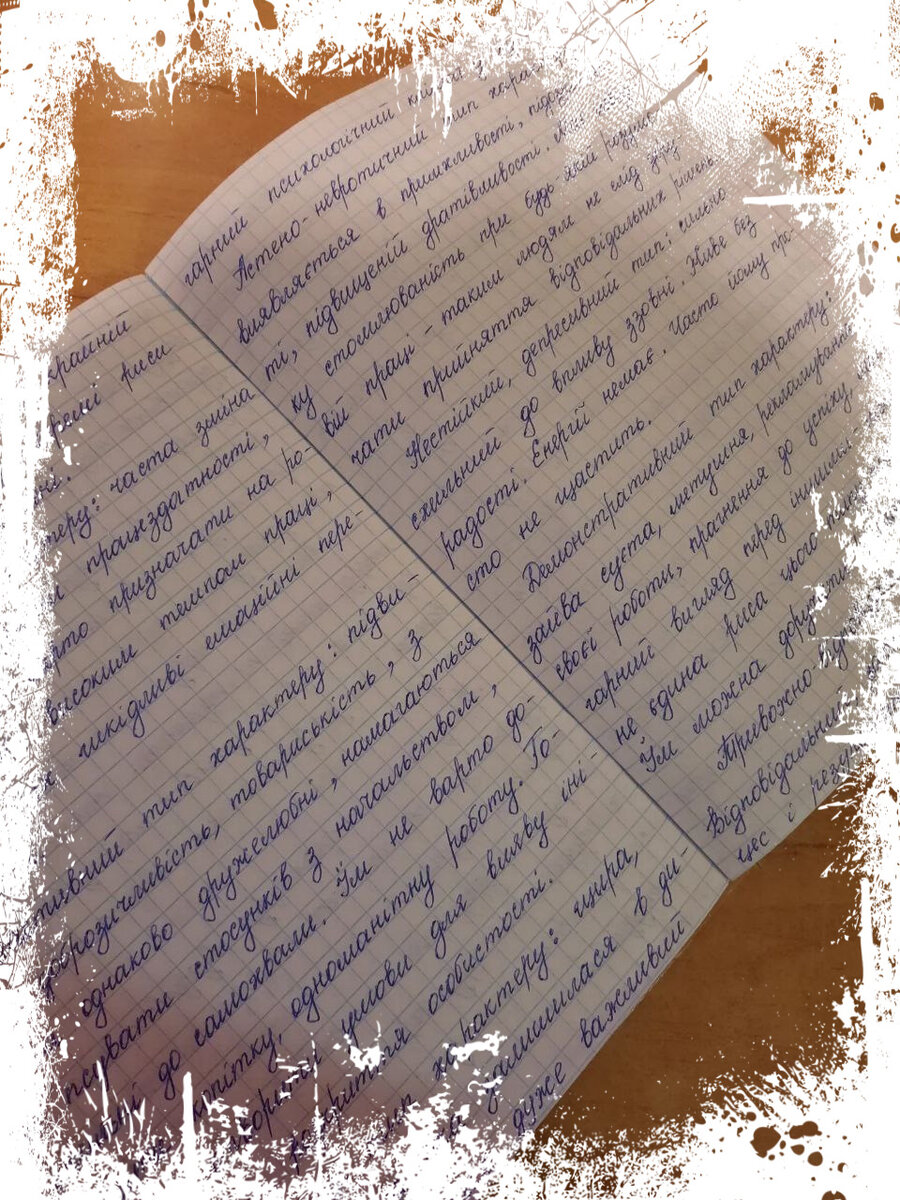 крайній
риси
часта зміна
працездатності,
призначати на ро-
високим темпом праці,
шкідливі емоційні пере-
тип характеру: підви-
доброзичливість, товариськість, з
однаково дружелюбні, намагаються
псувати стосунків з начальством,
до самохвали. Їм не варто до-
одноманітну роботу. Го-
умови для вияву іні-
особистості.
характеру: щира,
залишилася в ди-
дуже важливий
гарний психологічний
Астено-невротичний тип
виявляється в примхливості,
ті, підвищеній дратівливості.
ку стомлюваність при будь якій
вій праці - таким людям не слід
чати прийняття відповідальних рішень
Нестійкий, депресивний тип: сильно
схильний до впливу ззовні. Живе без
радості. Енергії немає. Часто йому про-
сто не щастить.
Демонстративний тип характеру:
зайва суєта, метушня, рекламування
своєї роботи, прагнення до успіху,
гарний вигляд перед іншими
не єдина риса цього
Їм можна
Тривожно
Відповідальний
цес і